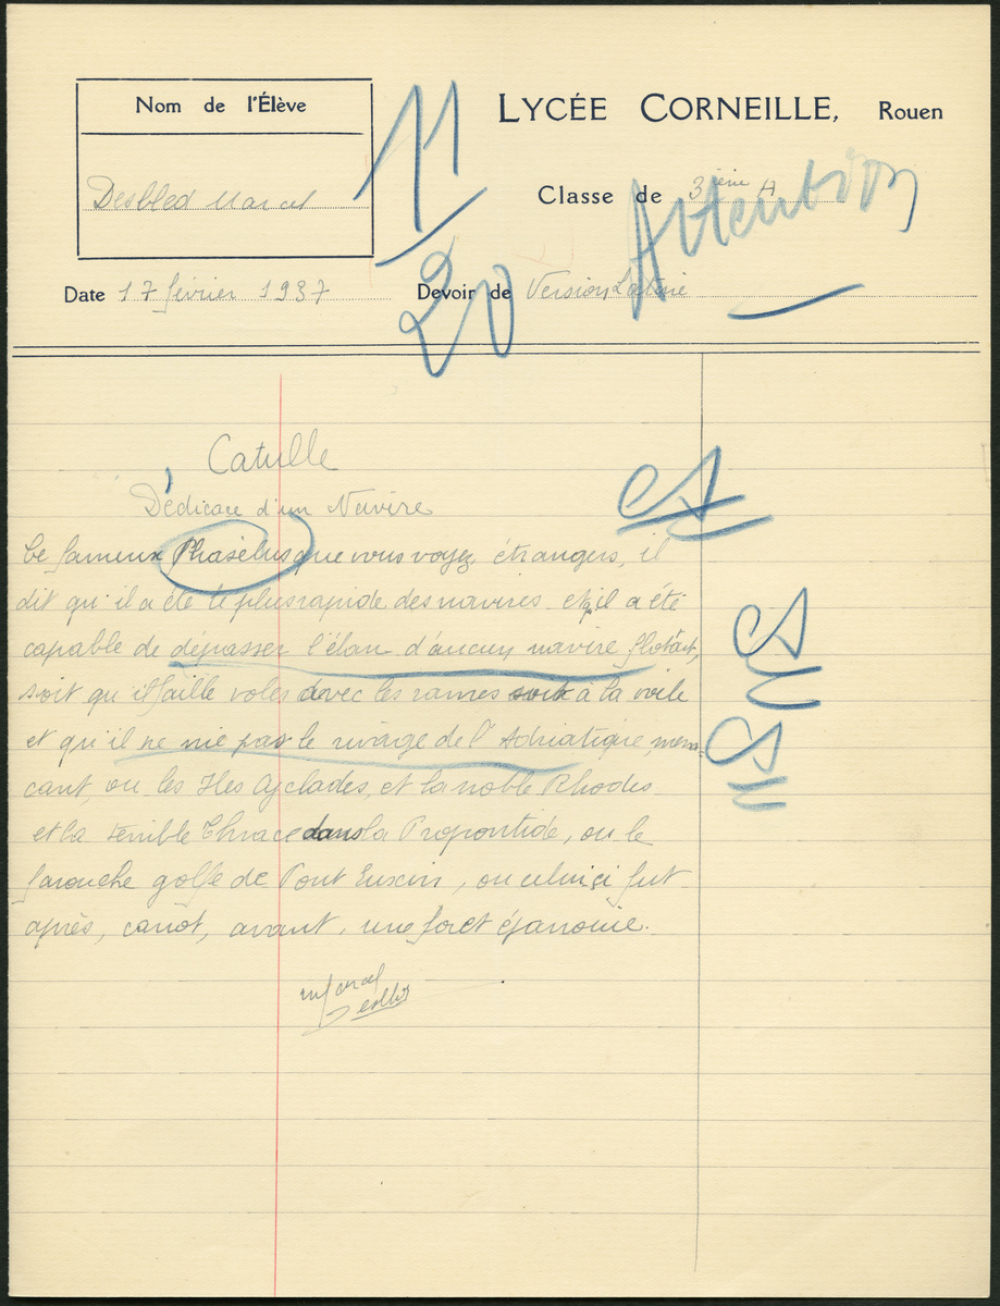 Nom de l'Élève
Desbled Marcel
11
20
LYCÉE CORNEILLE, Rouen
Classe de 3ème A
Attention
Date 17 février 1937
Devoir de Version Latine
Catulle
Dédicace d'un Navire
Ce fameux Phasélus que vous voyez, étrangers, il
dit qu'il a été le plus rapide des navires et qu'il a été
capable de dépasser l'élan d'aucun navire flottant,
soit qu'il faille voler avec les rames soit à la voile
et qu'il ne nie pas le rivage de l'Adriatique, mena-
cant, ou les Iles Cyclades, et la noble Rhodes
et la terrible Thrace dans la Propontide, ou le
farouche golfe de Pont Euxin, ou celui ci fut
après, canot, avant, une foret épanouie.
Marcel
Desbled